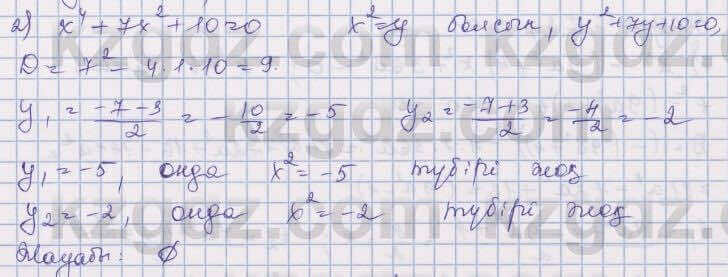 2) x⁴ + 7x² + 10 = 0 x² = y болсын, y² + 7y + 10 = 0,
D = 7² - 4·1·10 = 9.
y₁ = (-7-3)/2 = -10/2 = -5 y₂ = (-7+3)/2 = -4/2 = -2
y₁ = -5, онда x² = -5 түбірі жоқ
y₂ = -2, онда x² = -2 түбірі жоқ
Жауабы: ∅
kzgdz.com